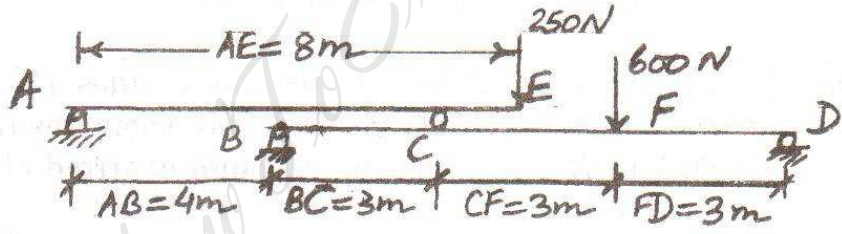 AE = 8m
250N
600N
A
E
B
C
F
D
AB = 4m
BC = 3m
CF = 3m
FD = 3m